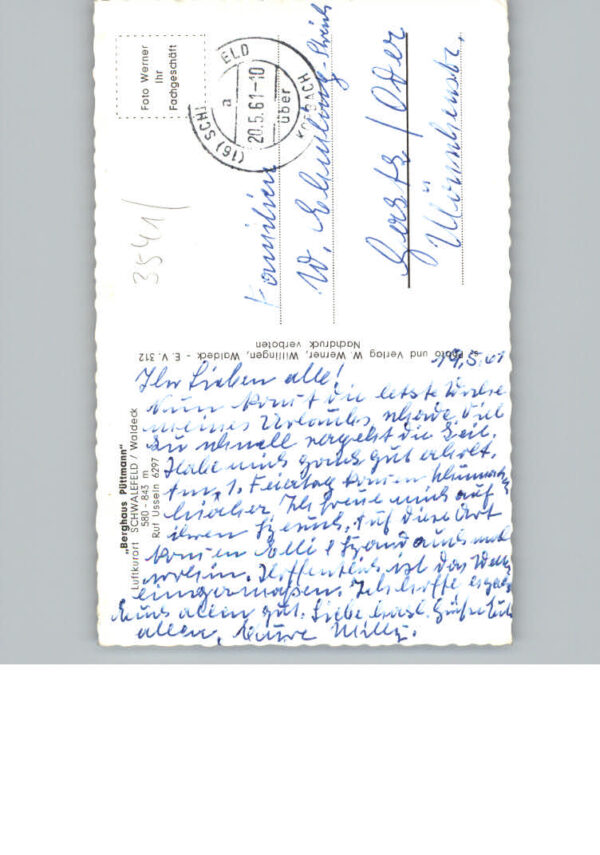 "Berghaus Püttmann"
Luftkurort SCHWALEFELD / Waldeck
580 - 843 m
Ruf Usseln 6297
Foto Werner
Ihr
Fachgeschäft
(16) SCH ELD
über
KORBACH
a
20.5.61-10
3541/
Familie
W.
/Oder
Photo und Verlag W. Werner, Willingen, Waldeck - E. V. 312
Nachdruck verboten
19.5.61
Ihr Lieben alle!
Nun kommt die letzte Woche
meines Urlaubs, schade, viel
zu schnell vergeht die Zeit.
Habe mich ganz gut erholt.
Am 1. Feiertag
hierher. Ich freue mich auf
ihren Besuch. Auf diese Art
kommen Elli & auch mal
Hoffentlich ist das Wetter
einigermaßen. Ich hoffe es geht
Euch allen gut. Liebe Grüße Euch
allen, Eure Milly.